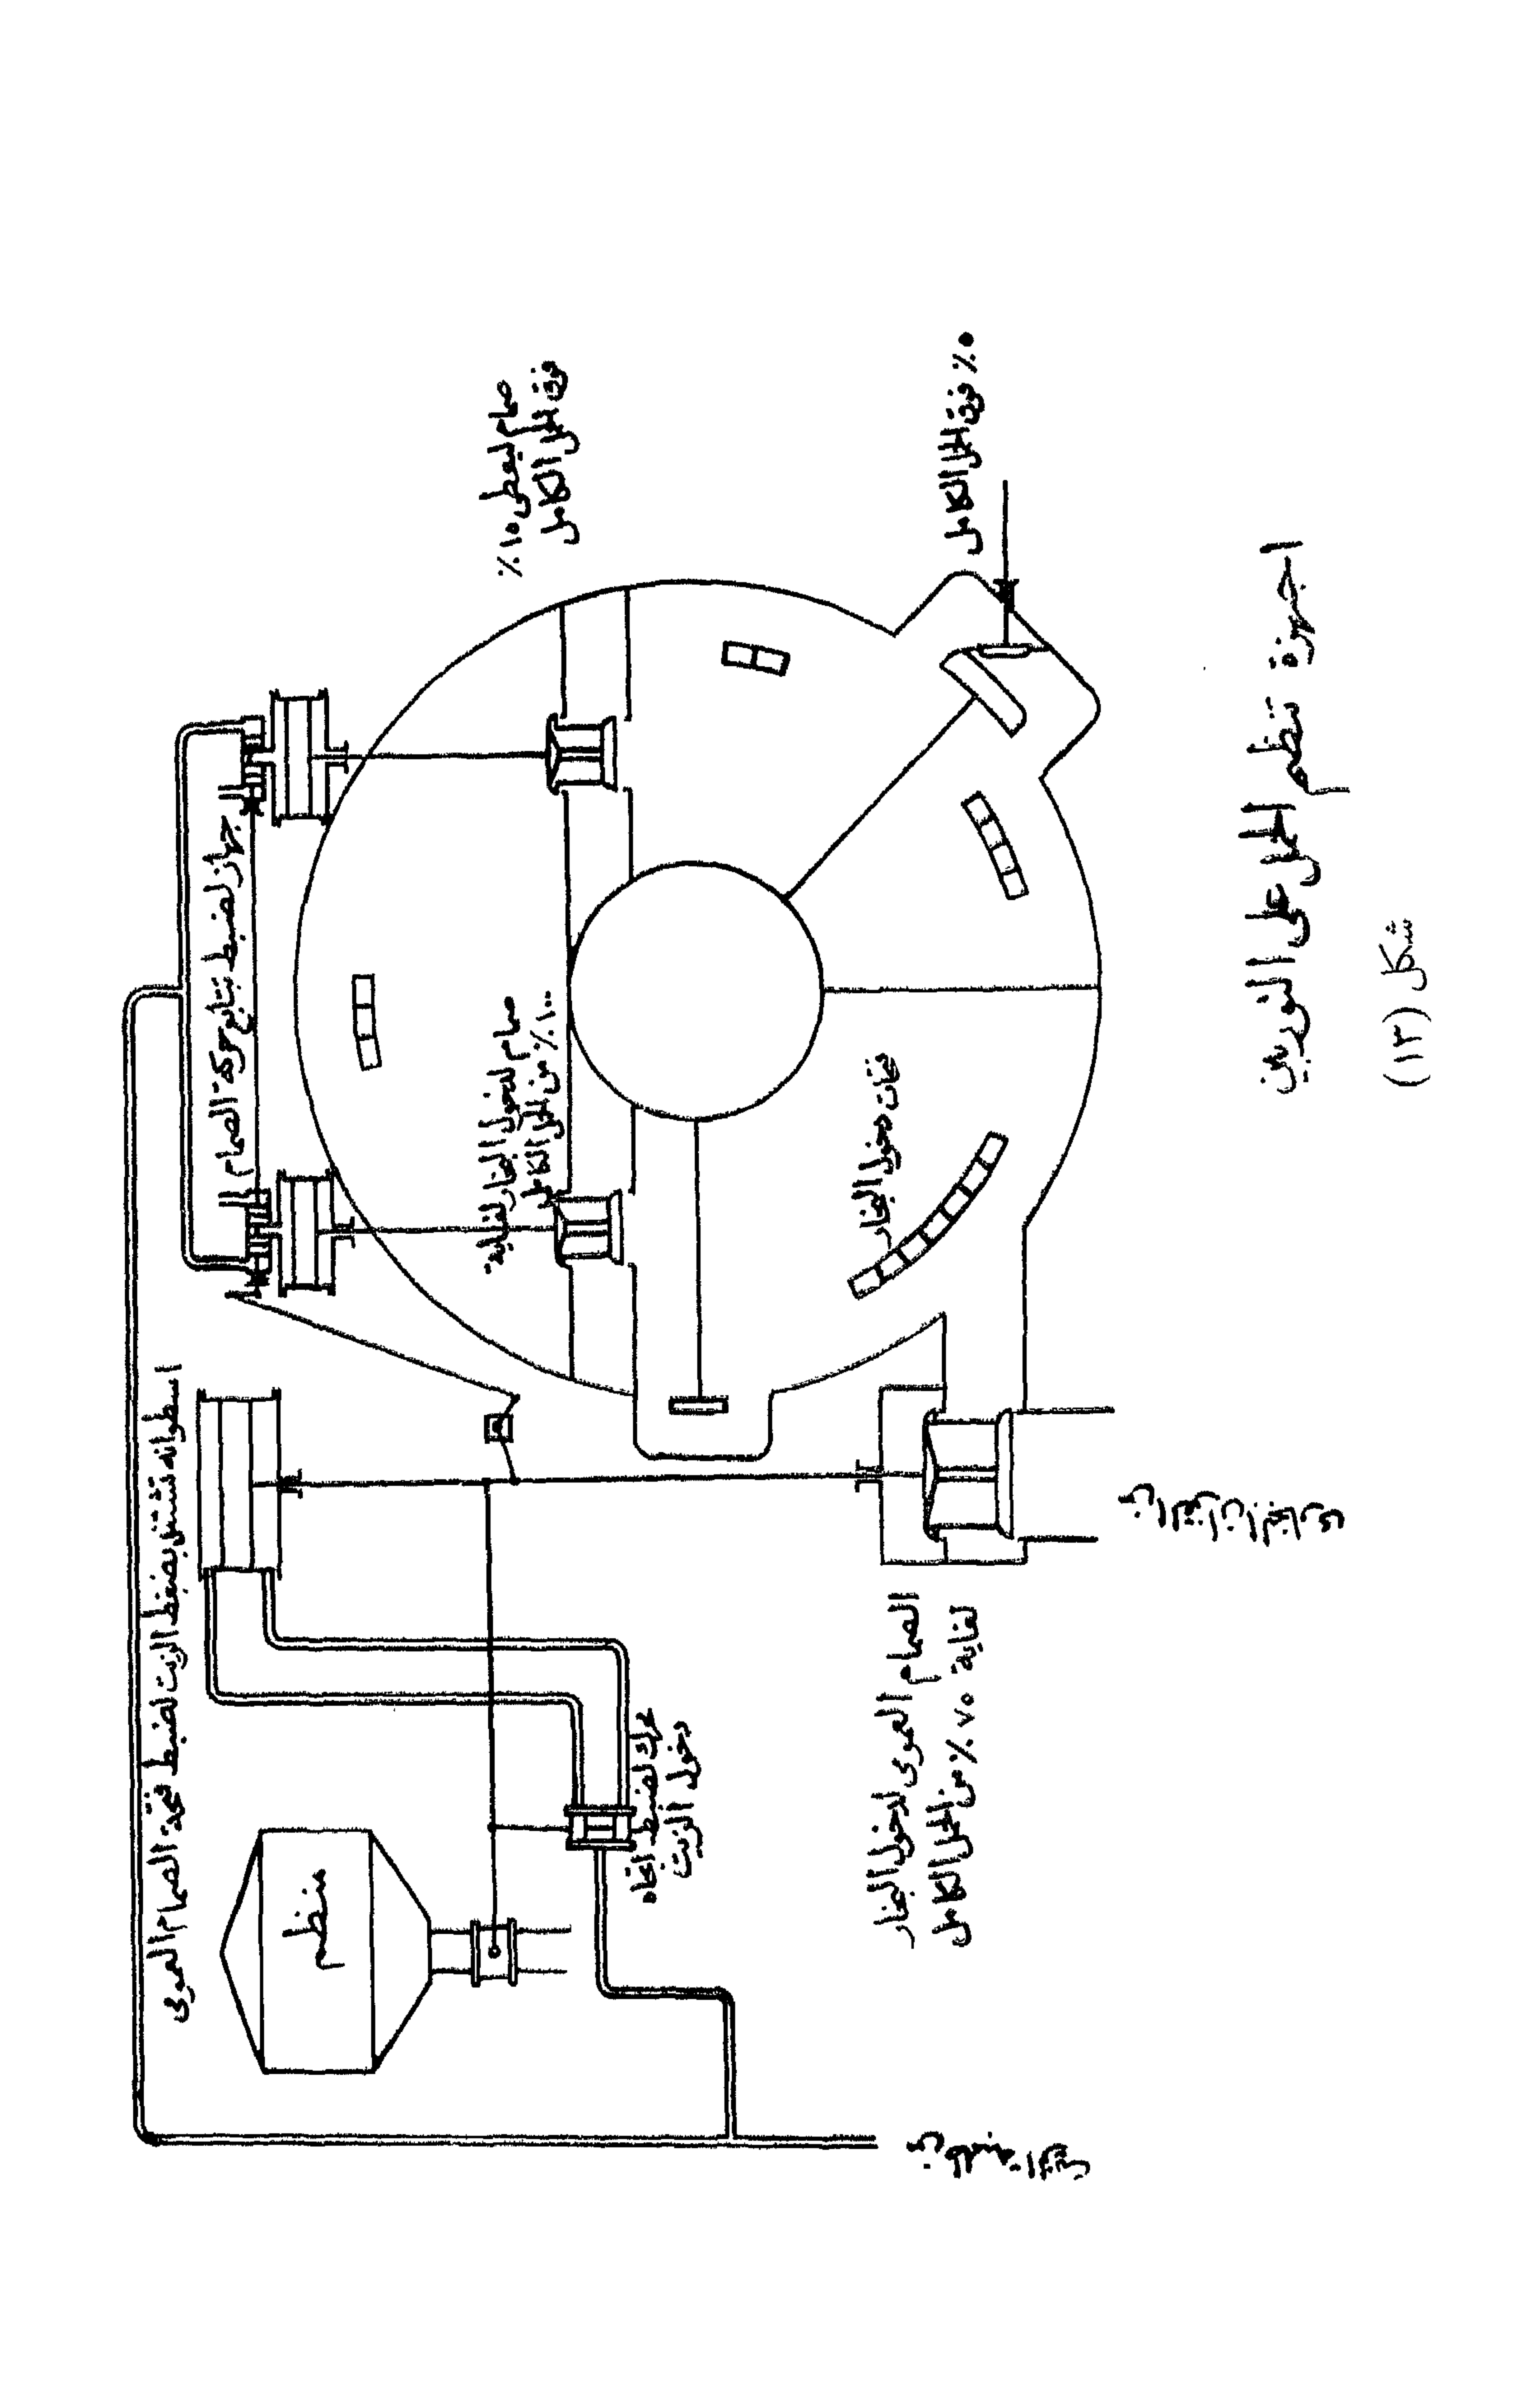 اسطوانه تشتغل بضغط الزيت لضبط فتحة الصمام العمومى
جهاز لضبط تتابع حركة الصمام
منظم
صمام لدخول البخار لغاية
١٠٠٪ من الحمل الكامل
صمام ليعطى ١٠٪
فوق الحمل الكامل
محرك لضبط اتجاه
دخول الزيت
فتحات دخول البخار
٥٪ فوق الحمل الكامل
الصمام العمومى لدخول البخار
لغاية ٧٠٪ من الحمل الكامل
من طلمبة الزيت
اجهزة تنظيم الحمل على التوربين
شكل (١٣)